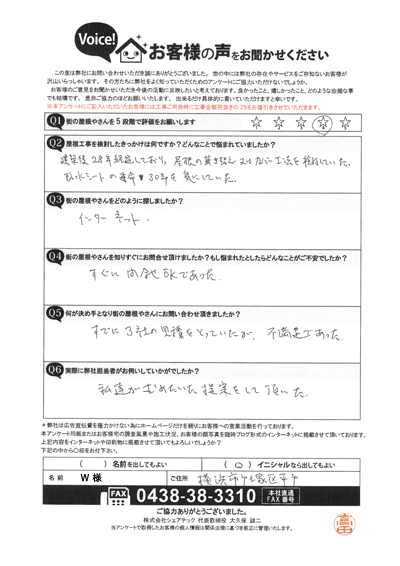 Voice!
お客様の声をお聞かせください
この度は弊社にお問い合わせいただき誠にありがとうございました。世の中には弊社の存在やサービスをご存知ないお客様が
沢山いらっしゃいます。そのの方たちに弊社をよく知っていただくためのアンケートにご協力いただけないでしょうか。
お客様のご意見をお聞かせいただき今後の活動に反映したいと考えております。良かったこと、嬉しかったこと、どのような些細な事
でも結構です。是非ご協力のほどお願いいたします。出来るだけ具体的に書いていただけますと幸いです。
※本アンケートにご記入いただいたお客様には工事ご用命時に工事金額総額の2%をお値引きさせていただきます。
Q1 街の屋根やさんを5段階で評価をお願いします
Q2 屋根工事を検討したきっかけは何ですか？どんなことで悩まれていましたか？
建築後28年経過しており、屋根の葺き替え又はカバー工法を検討していた。
防水シートの寿命30年を気にしていた。
Q3 街の屋根やさんをどのように探しましたか？
インターネット.
Q4 街の屋根やさんを知りすぐにお問合せ頂けましたか？もし悩まれたとしたらどんなことがご不安でしたか？
すぐに問合せOKであった.
Q5 何が決め手となり街の屋根やさんにお問い合わせ頂きましたか？
すでに3社の見積をとっていたが、不満足であった.
Q6 実際に弊社担当者がお伺いしていかがでしたか？
私達が求めたいた提案をして頂いた.
＊弊社は広告宣伝費を極力かけない為にホームページだけを頼りにお客様への営業活動を行っております。
本アンケート用紙またはお客様宅の調査風景や施工状況、お客様の顔写真を随時ブログ形式のインターネットに掲載させて頂いております。
上記内容をインターネットや印刷物に掲載させて頂いてもよろしいでしょうか？
下記の中から〇印をお付け下さい。
（ ）名前を出してもよい （〇）イニシャルなら出してもよい
名前 W様 ご住所 横浜市戸塚区平戸
FAX 0438-38-3310 本社直通 FAX番号
ご協力ありがとうございました。
株式会社シェアテック 代表取締役 大久保 誠二
当アンケートで取得したお客様の個人情報は関係法規に基づき厳正に管理いたします。